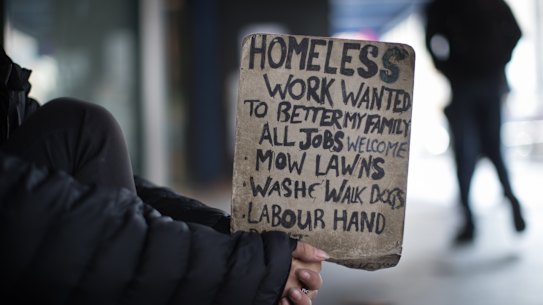 HOMELESS
WORK WANTED
TO BETTER MY FAMILY
ALL JOBS WELCOME
MOW LAWNS
. WASHE WALK DOGS
. LABOUR HAND